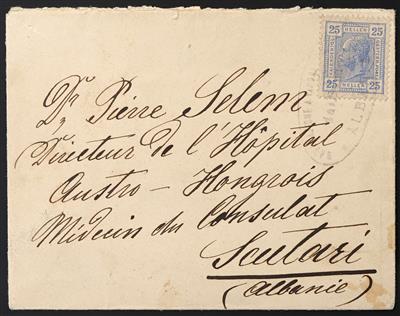 25 HELLER 25
25 25
Dr. Pierre Selem
Directeur de l'Hôpital
Austro - Hongrois
Médecin du Consulat
Scutari
(Albanie)